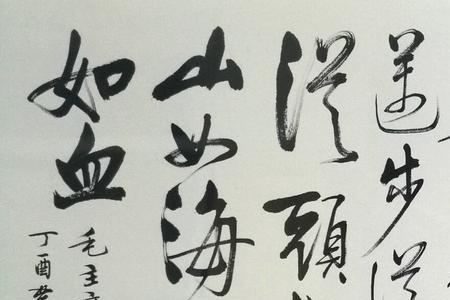 邁步從
從頭
山如海
如血
毛主
丁酉